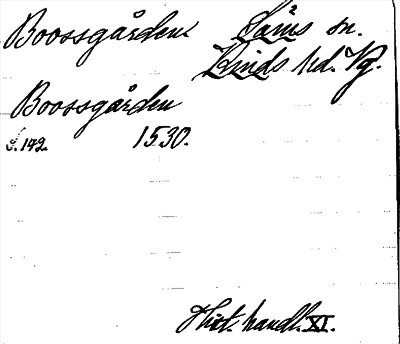 Boossgården. Säms sn.
Kinds hd. Vg.
Boossgården
s. 142. 1530.
Hist. handl. XI.